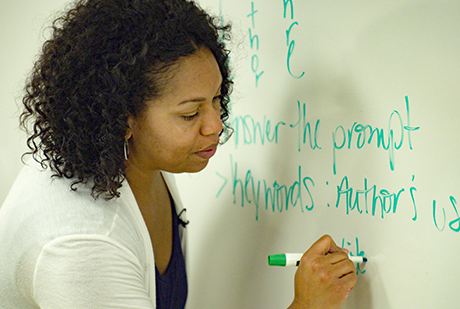 t h
h r
o e
r
Answer the prompt
>keywords: Author's us